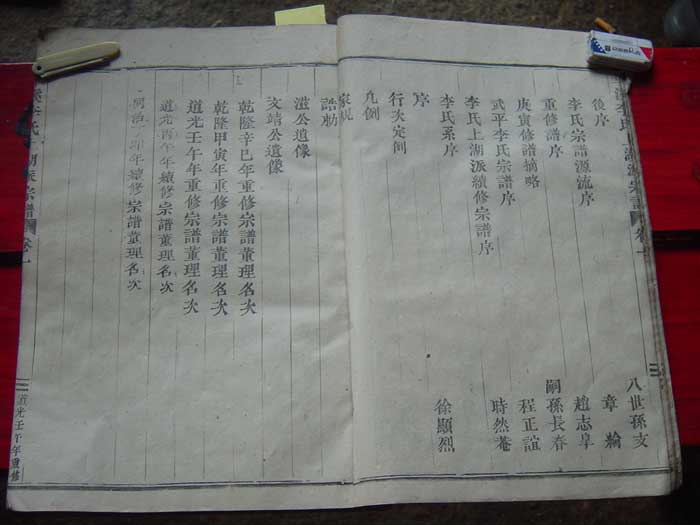 後序
八世孫支
李氏宗譜源流序
章綸
重修譜序
趙志皐
庚寅修譜摘略
嗣孫長春
武平李氏宗譜序
程正誼
李氏上湖派續修宗譜序
時然菴
李氏系序
序
徐顯烈
行次定例
凡例
家規
誥勅
澨公遺像
文靖公遺像
乾隆辛巳年重修宗譜董理名次
乾隆甲寅年重修宗譜董理名次
道光壬午年重修宗譜董理名次
道光丙午年續修宗譜董理名次
同治年續修宗譜董理名次
李氏上湖派宗譜 卷一
道光壬午年重修